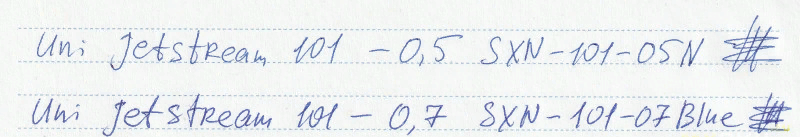 Uni Jetstream 101 - 0,5 SXN-101-05N
Uni Jetstream 101 - 0,7 SXN-101-07 Blue